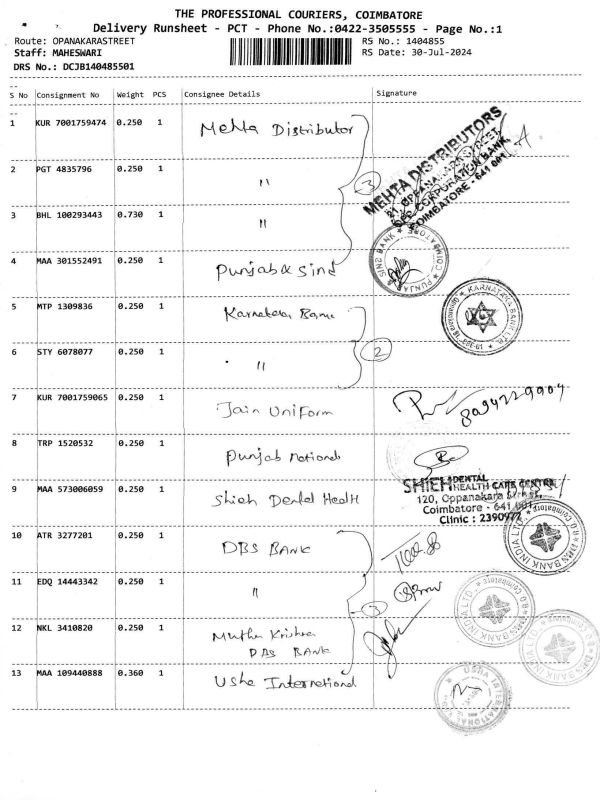 THE PROFESSIONAL COURIERS, COIMBATORE
Delivery Runsheet - PCT - Phone No.:0422-3505555 - Page No.:1
Route: OPANAKARASTREET RS No.: 1404855
Staff: MAHESWARI RS Date: 30-Jul-2024
DRS No.: DCJB140485501
S No Consignment No Weight PCS Consignee Details Signature
1 KUR 7001759474 0.250 1 Mehta Distributor
MEHTA DISTRIBUTORS
OPPANAKARA STREET
CORPORATION BANK
COIMBATORE - 641 001
2 PGT 4835796 0.250 1 "
3
3 BHL 100293443 0.730 1 "
4 MAA 301552491 0.250 1 Punjab & Sind
PUNJAB SIND BANK COIMBATORE
5 MTP 1309836 0.250 1 Karnataka Bank
KARNATAKA BANK LTD.
6 STY 6078077 0.250 1 "
2
7 KUR 7001759065 0.250 1 Jain Uniform
8 TRP 1520532 0.250 1 Punjab National
9 MAA 573006059 0.250 1 Shieh Dental Health
SHIEH DENTAL HEALTH CARE CENTRE
120, Oppanakara Street,
Coimbatore - 641 001
Clinic :
10 ATR 3277201 0.250 1 DBS BANK
BANK INDIA LTD. Coimbatore
11 EDQ 14443342 0.250 1 "
3
BANK INDIA LTD. Coimbatore
12 NKL 3410820 0.250 1 Muthu Krishna
DBS BANK
BANK INDIA LTD.
13 MAA 109440888 0.360 1 Usha International
USHA INTERNATIONAL